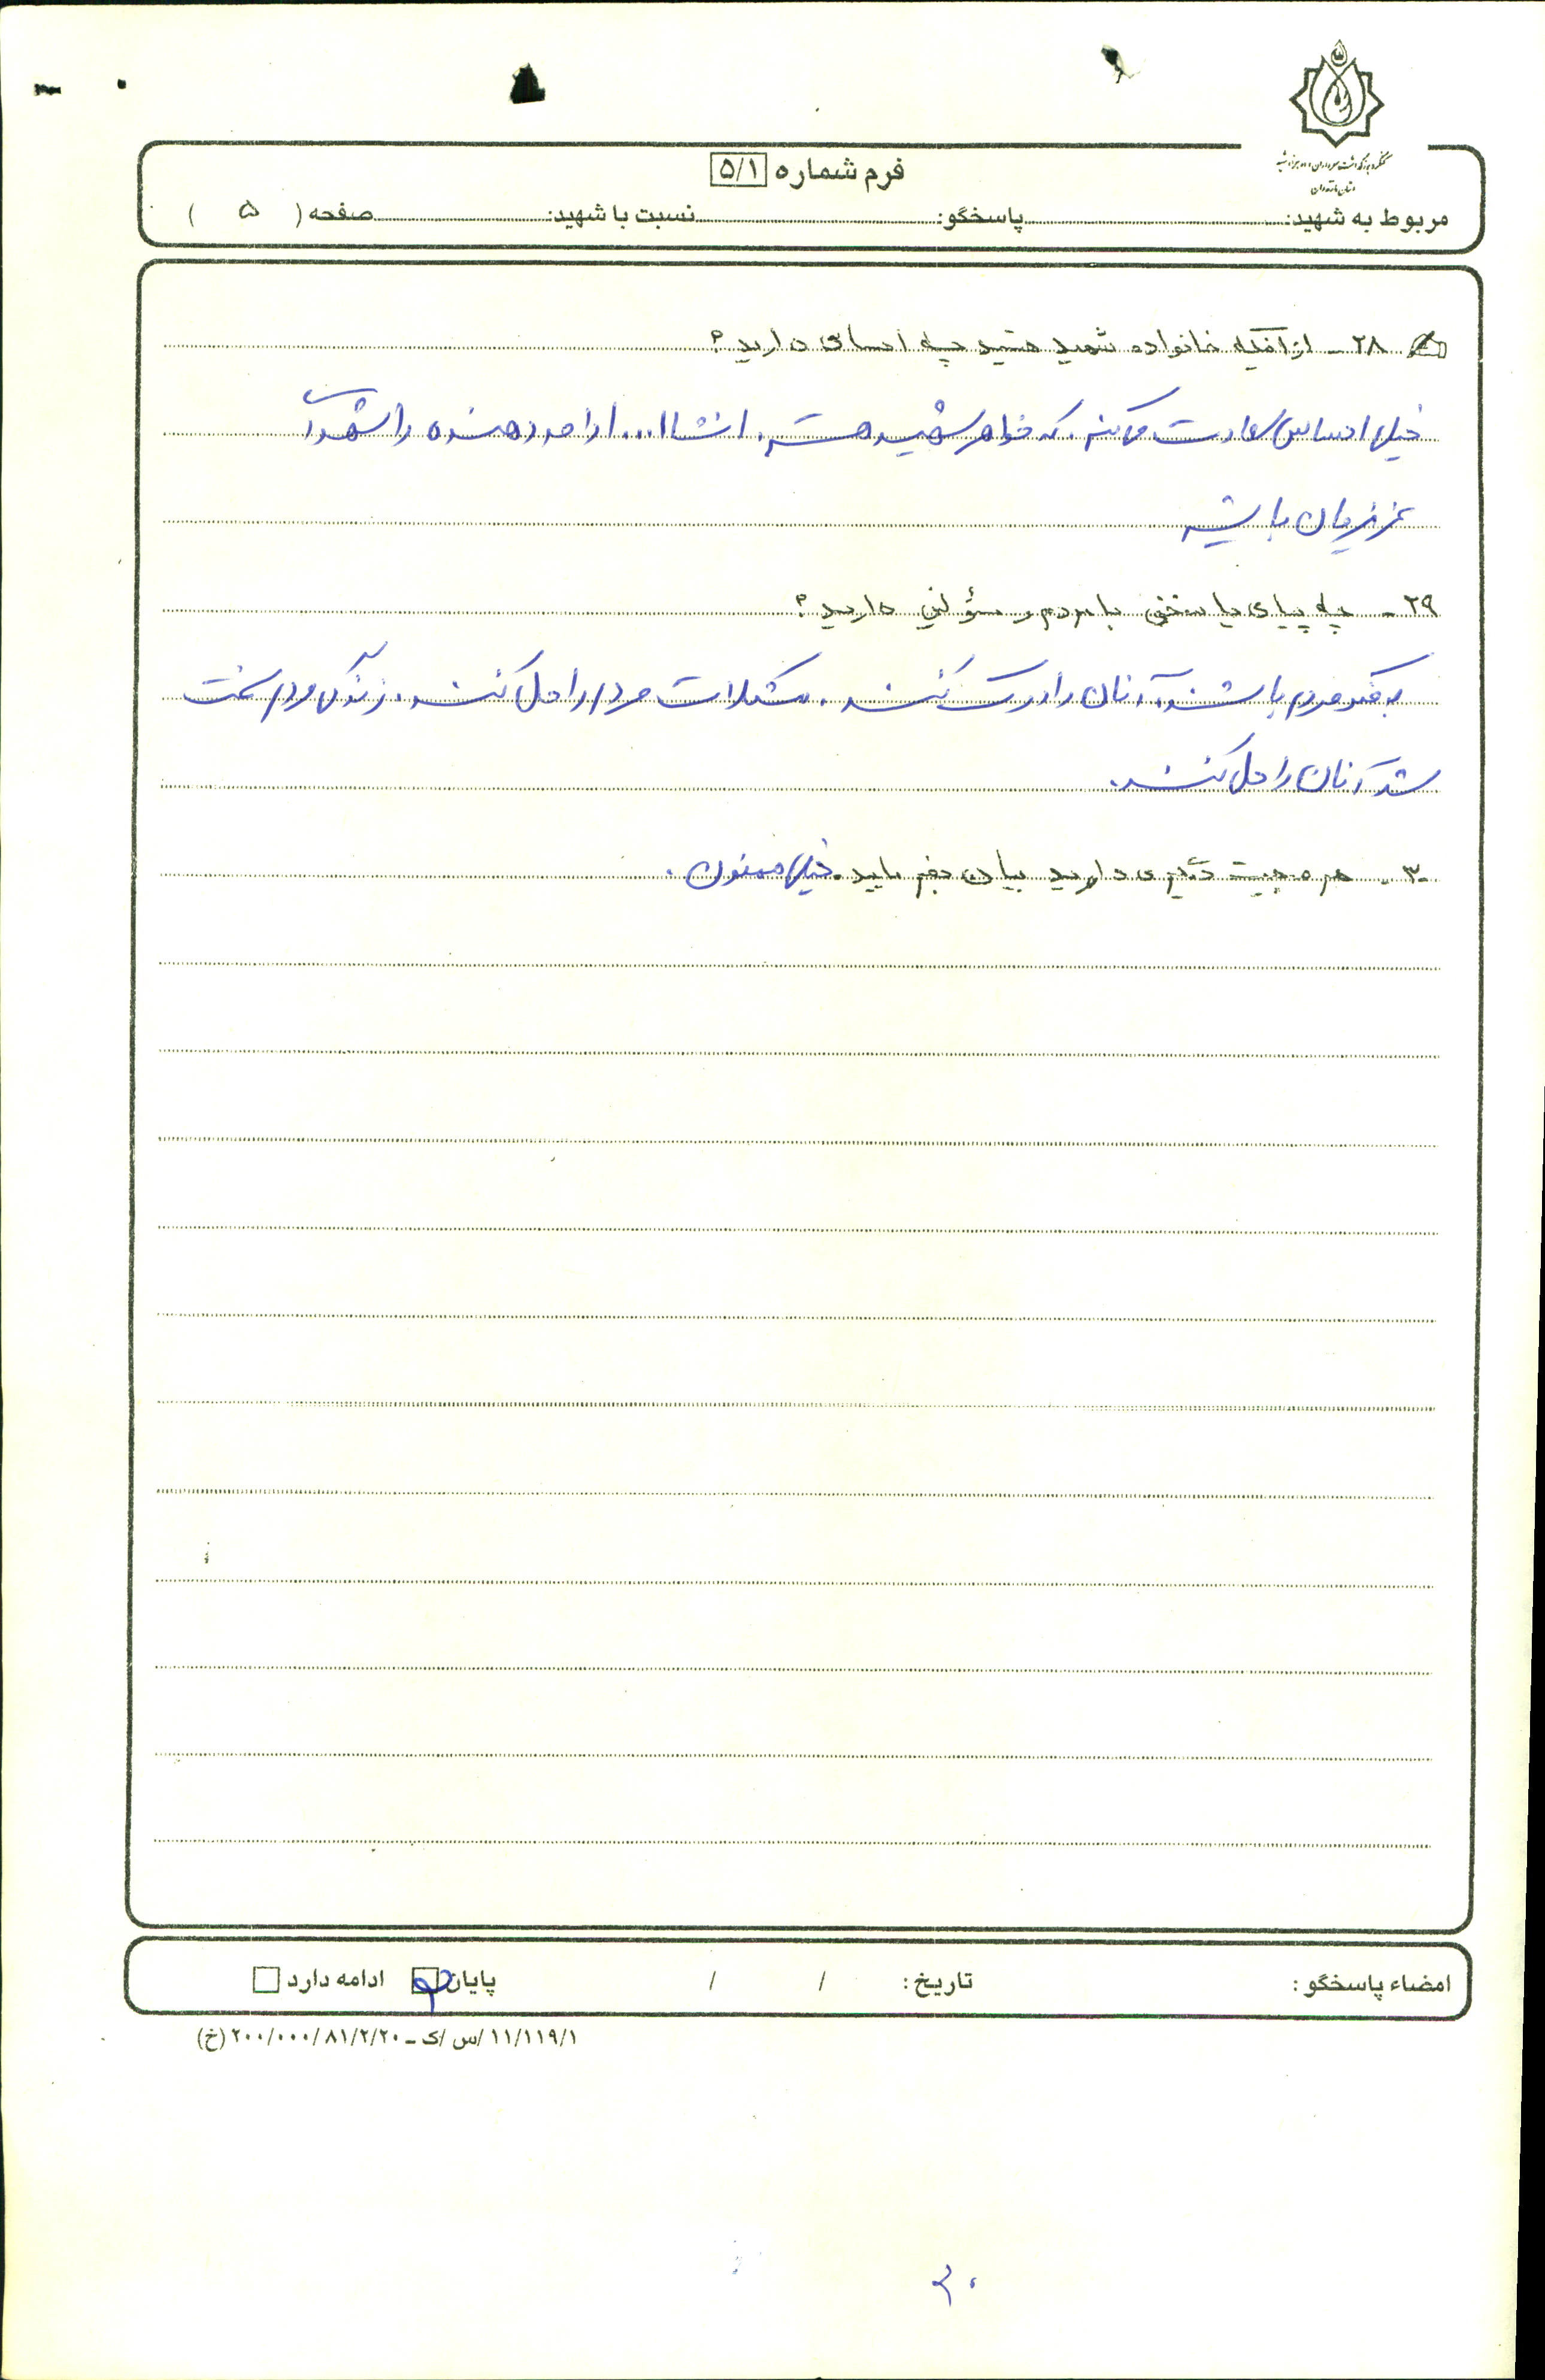 کنگره بزرگداشت سرداران و ده هزار شهید
استان مازندران
فرم شماره ۵/۱
مربوط به شهید: پاسخگو: نسبت با شهید: صفحه ( ۵ )
۲۸ - از اینکه خانواده شهید هستید چه احساسی دارید؟
خیلی احساس سعادت می کنم. که خواهر شهید هستم. انشاا... ادامه دهنده راه شهدای
عزیزمان باشیم
۲۹ - چه پیامی یا سخنی با مردم و مسؤلین دارید؟
به فکر مردم باشند، آنان را درک کنند. مشکلات مردم را حل کنند. زندگی مردم سخت
شد آنان را حل کنند.
۳۰ - هر صحبت دیگری دارید بیان بفرمایید. خیلی ممنون.
امضاء پاسخگو: تاریخ: / / پایان ادامه دارد
۱۱/۱۱۹/۱/س/ک - ۲۰۰/۰۰۰/۸۱/۲/۲۰ (خ)